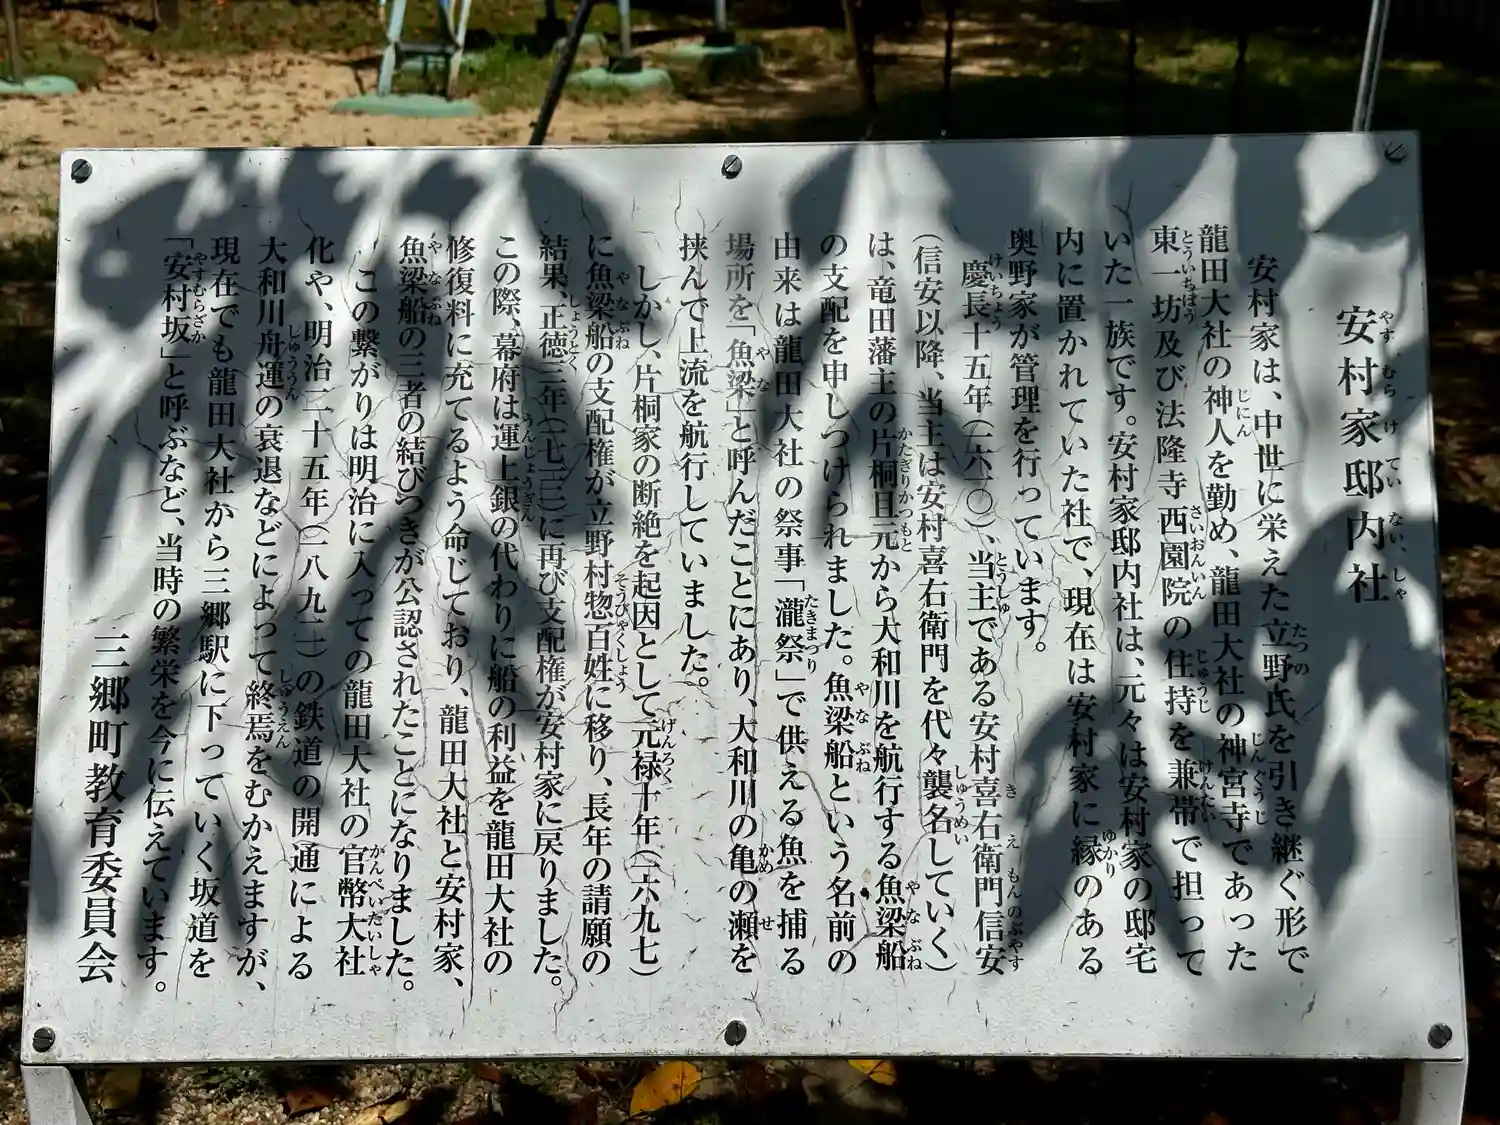 安村家邸内社
安村家は、中世に栄えた立野氏を引き継ぐ形で
龍田大社の神人を勤め、龍田大社の神宮寺であった
東一坊及び法隆寺西園院の住持を兼帯で担って
いた一族です。安村家邸内社は、元々は安村家の邸宅
内に置かれていた社で、現在は安村家に縁のある
奥野家が管理を行っています。
慶長十五年(一六一〇)、当主である安村喜右衛門信安
(信安以降、当主は安村喜右衛門を代々襲名していく)
は、竜田藩主の片桐且元から大和川を航行する魚梁船
の支配を申しつけられました。魚梁船という名前の
由来は龍田大社の祭事「瀧祭」で供える魚を捕る
場所を「魚梁」と呼んだことにあり、大和川の亀の瀬を
挟んで上流を航行していました。
しかし、片桐家の断絶を起因として元禄十年(一六九七)
に魚梁船の支配権が立野村惣百姓に移り、長年の請願の
結果、正徳三年(一七一三)に再び支配権が安村家に戻りました。
この際、幕府は運上銀の代わりに船の利益を龍田大社の
修復料に充てるよう命じており、龍田大社と安村家、
魚梁船の三者の結びつきが公認されたことになりました。
この繋がりは明治に入っての龍田大社の官幣大社
化や、明治二十五年(一八九二)の鉄道の開通による
大和川舟運の衰退などによって終焉をむかえますが、
現在でも龍田大社から三郷駅に下っていく坂道を
「安村坂」と呼ぶなど、当時の繁栄を今に伝えています。
三郷町教育委員会